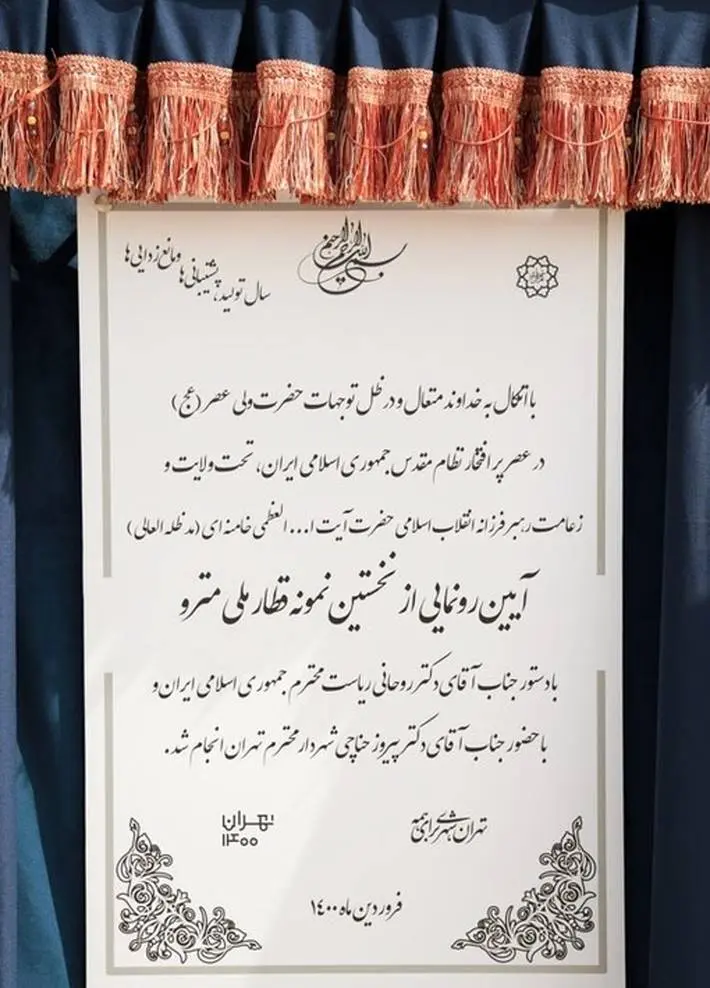 بسم الله الرحمن الرحیم
سال تولید، پشتیبانی‌ها و مانع زدایی‌ها
با اتکال به خداوند متعال و در ظل توجهات حضرت ولی عصر (عج)
در عصر پر افتخار نظام مقدس جمهوری اسلامی ایران، تحت ولایت و
زعامت رهبر فرزانه انقلاب اسلامی حضرت آیت ا... العظمی خامنه ای (مد ظله العالی)
آیین رونمایی از نخستین نمونه قطار ملی مترو
با دستور جناب آقای دکتر روحانی ریاست محترم جمهوری اسلامی ایران و
با حضور جناب آقای دکتر پیروز حناچی شهردار محترم تهران انجام شد.
تهران شهری برای همه
تهران
۱۴۰۰
فروردین ماه ۱۴۰۰